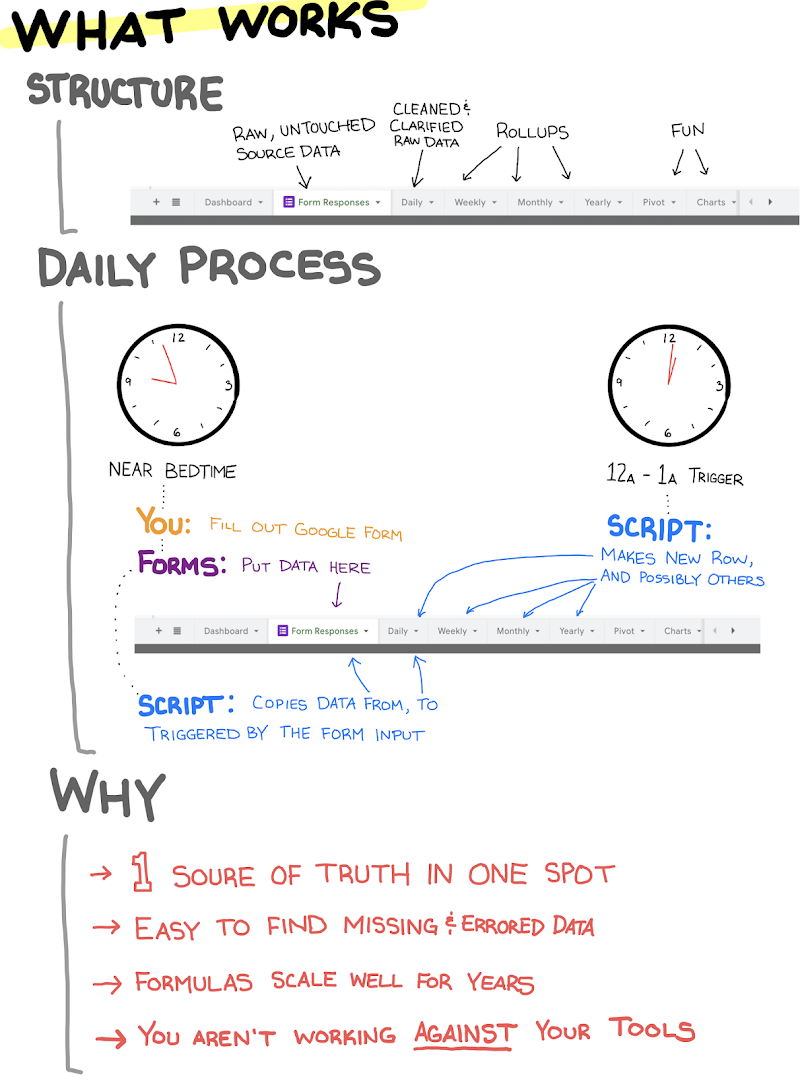 WHAT WORKS
STRUCTURE
RAW, UNTOUCHED
SOURCE DATA
CLEANED &
CLARIFIED
RAW DATA
ROLLUPS
FUN
+ Dashboard Form Responses Daily Weekly Monthly Yearly Pivot Charts
DAILY PROCESS
12
9 3
6
12
9 3
6
NEAR BEDTIME
YOU: FILL OUT GOOGLE FORM
FORMS: PUT DATA HERE
12A - 1A TRIGGER
SCRIPT:
MAKES NEW ROW,
AND POSSIBLY OTHERS
+ Dashboard Form Responses Daily Weekly Monthly Yearly Pivot Charts
SCRIPT: COPIES DATA FROM, TO
TRIGGERED BY THE FORM INPUT
WHY
→ 1 SOURE OF TRUTH IN ONE SPOT
→ EASY TO FIND MISSING & ERRORED DATA
→ FORMULAS SCALE WELL FOR YEARS
→ YOU AREN'T WORKING AGAINST YOUR TOOLS